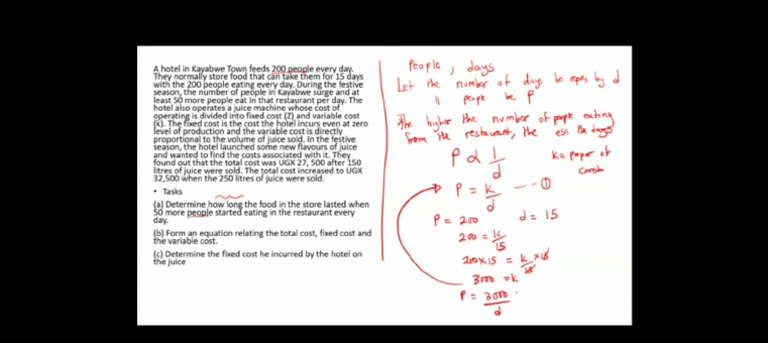 A hotel in Kayabwe Town feeds 200 people every day.
They normally store food that can take them for 15 days
with the 200 people eating every day. During the festive
season, the number of people in Kayabwe surge and at
least 50 more people eat in that restaurant per day. The
hotel also operates a juice machine whose cost of
operating is divided into fixed cost (Z) and variable cost
(k). The fixed cost is the cost the hotel incurs even at zero
level of production and the variable cost is directly
proportional to the volume of juice sold. In the festive
season, the hotel launched some new flavours of juice
and wanted to find the costs associated with it. They
found out that the total cost was UGX 27, 500 after 150
litres of juice were sold. The total cost increased to UGX
32,500 when the 250 litres of juice were sold.
• Tasks
(a) Determine how long the food in the store lasted when
50 more people started eating in the restaurant every
day.
(b) Form an equation relating the total cost, fixed cost and
the variable cost.
(c) Determine the fixed cost he incurred by the hotel on
the juice
People, days
Let the number of days be by d
" people be P
The higher the number of people eating
from the restaurant, the ess the days
P ∝ 1/d
K =
P = k/d --- ①
P = 200 d = 15
200 = k/15
200 x 15 = k/15 x 15
3000 = k
P = 3000/d